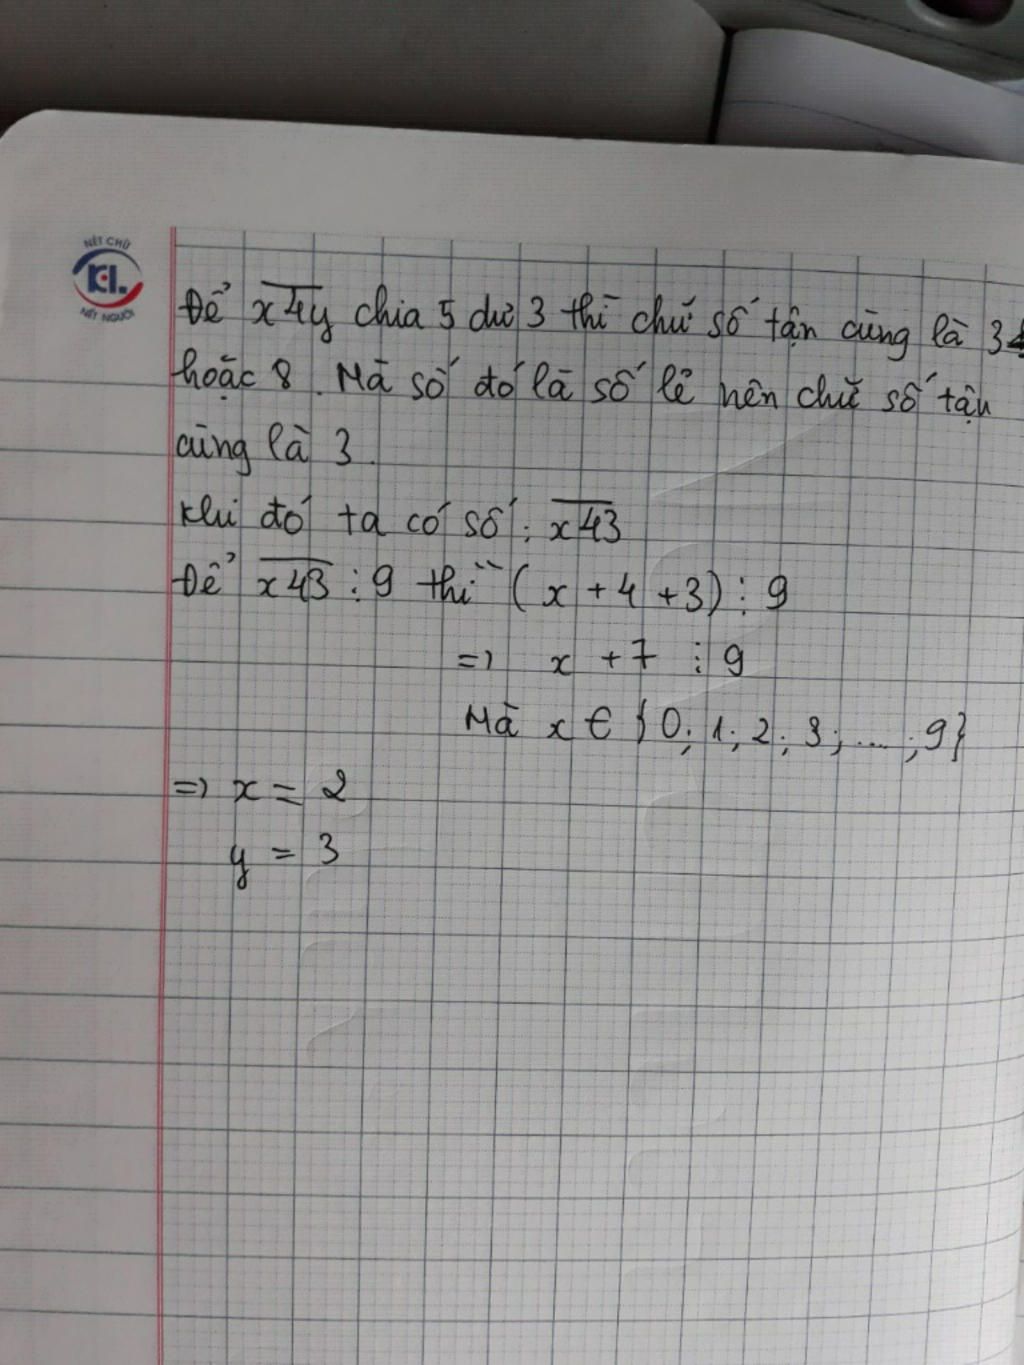 NÉT CHỮ
KL.
NẾT NGƯỜI
Để x̅4̅y̅ chia 5 dư 3 thì chữ số tận cùng là 3
hoặc 8. Mà số đó là số lẻ nên chữ số tận
cùng là 3.
Khi đó ta có số: x̅4̅3̅
Để x̅4̅3̅ ⋮ 9 thì (x + 4 + 3) ⋮ 9
=> x + 7 ⋮ 9
Mà x ∈ {0; 1; 2; 3; ... ; 9}
=> x = 2
y = 3